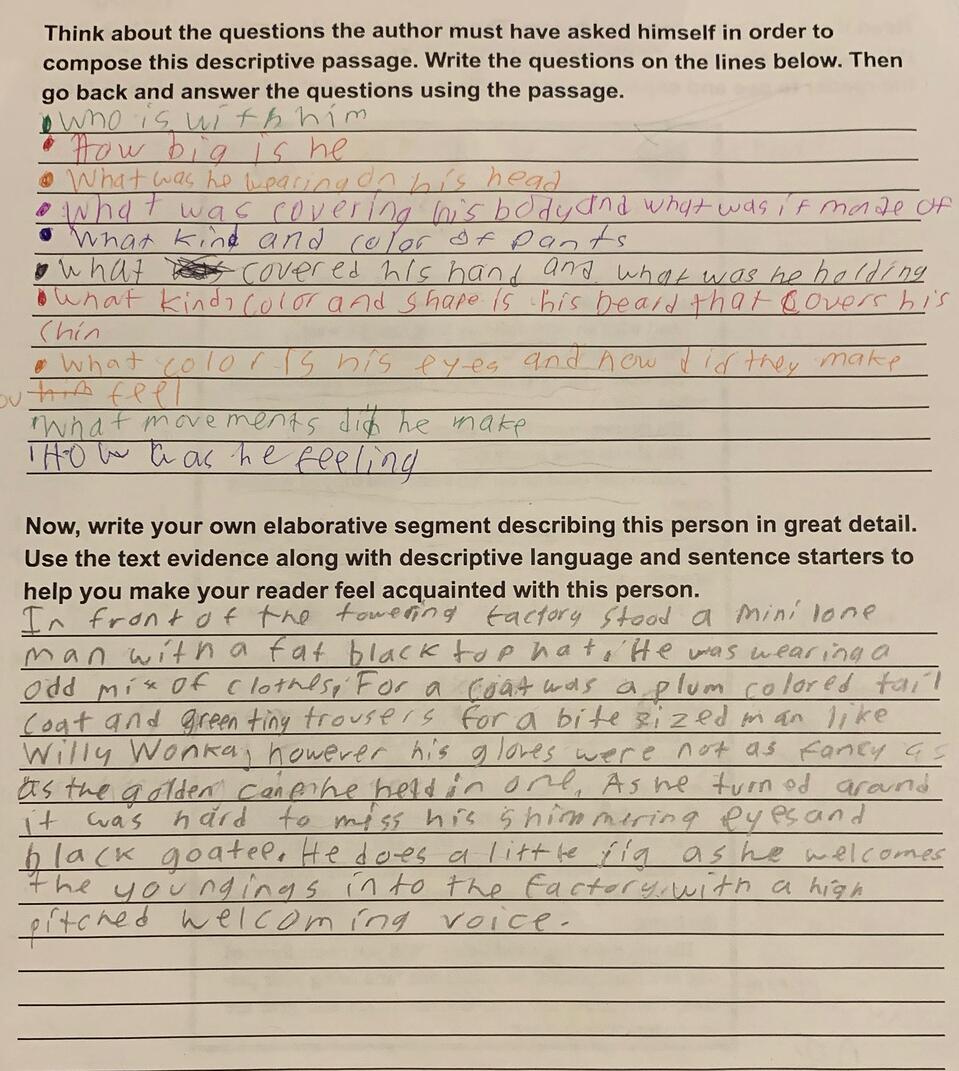 Think about the questions the author must have asked himself in order to
compose this descriptive passage. Write the questions on the lines below. Then
go back and answer the questions using the passage.
• Who is with him
• How big is he
• What was he wearing on his head
• What was covering his body and what was it made of
• What kind and color of pants
• What covered his hand and what was he holding
• What kind, color and shape is his beard that covers his
chin
• What color is his eyes and how did they make
ou feel
What movements did he make
How was he feeling
Now, write your own elaborative segment describing this person in great detail.
Use the text evidence along with descriptive language and sentence starters to
help you make your reader feel acquainted with this person.
In front of the towering factory stood a mini lone
man with a fat black top hat. He was wearing a
odd mix of clothes, For a coat was a plum colored tail
coat and green tiny trousers for a bite sized man like
Willy Wonka; however his gloves were not as fancy as
as the golden cane he held in one. As he turned around
it was hard to miss his shimmering eyes and
black goatee. He does a little jig as he welcomes
the youngings into the factory with a high
pitched welcoming voice.